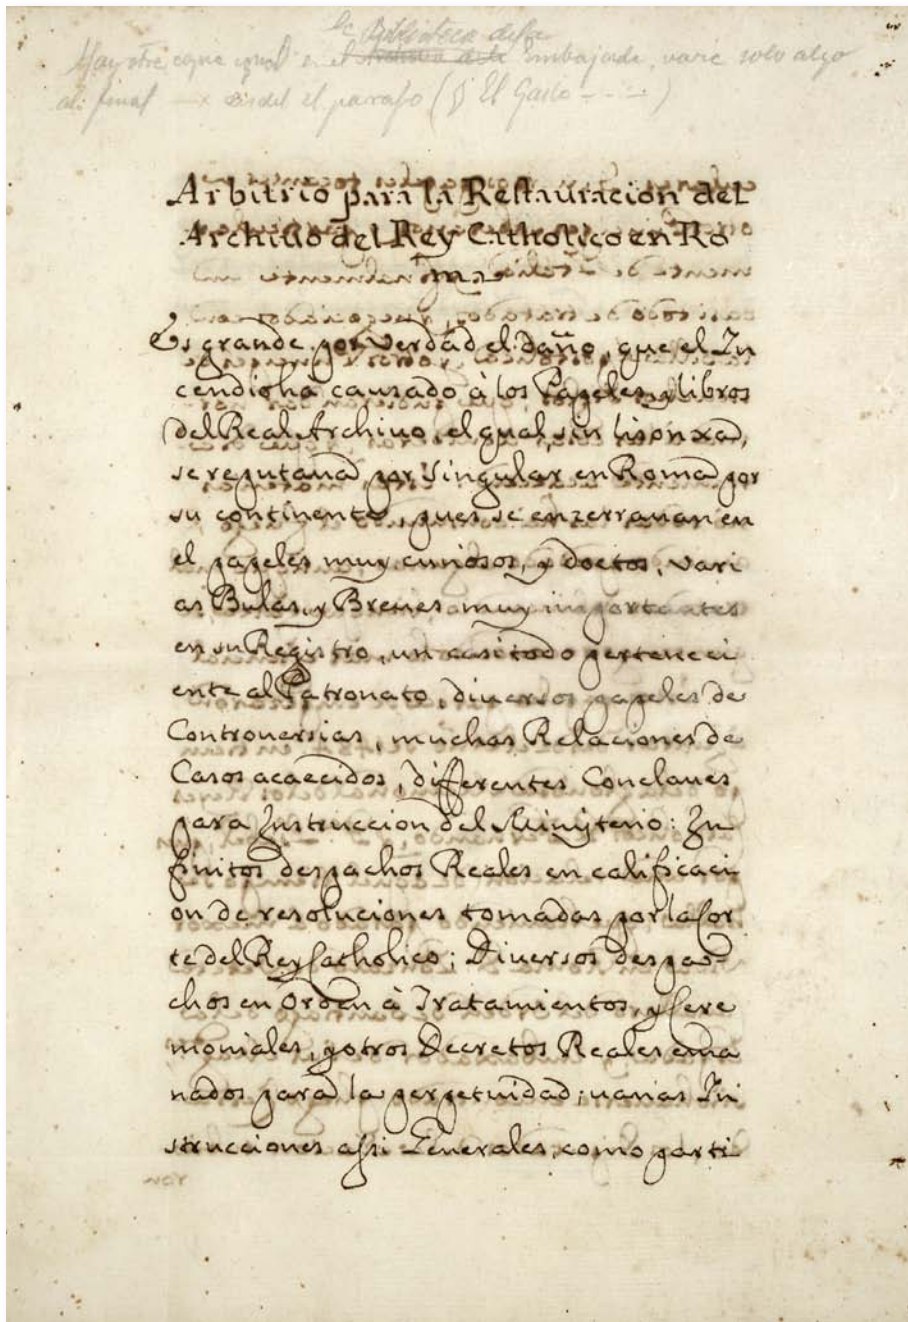 la Biblioteca desta
Hay otro egual en el Archivo desta Embajada, varía solo algo
al final desde el parrafo (§ El Gasto - - -)
Arbitrio para la Restauracion del
Archiuo del Rey Catholico en Ro
ma
Es grande por verdad el Daño, que el In
cendio ha causado à los Papeles, y libros
del Real Archiuo, el qual, sin lisonxa,
se reputaua por Singular en Roma por
su continente, pues se enzerrauan en
el papeles muy curiosos, y doctos, vari
as Bulas, y Breues muy importantes
en su Registro, un casi todo perteneci
ente al Patronato, diuersos papeles de
Controuersias, muchas Relaciones de
Casos acaecidos, differentes Conclaues
para Instruccion del Ministerio: In
finitos despachos Reales en calificaci
on de resoluciones tomadas por la Cor
te del Rey Catholico; Diuersos despa-
chos en Orden à Tratamientos, y Cere
moniales, y otros Decretos Reales ema
nados para la perpetuidad; uarias In
strucciones assi Generales, como parti